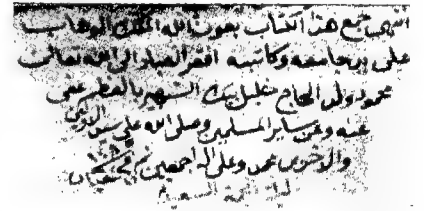 انتهى جمع هذا الكتاب بعون الله الملك الوهاب
على يد جامعه وكاتبه افقر العباد الى الله تعالى
محمود ولد الحاج خليل بيك الشهير بالفطر عفى
عنه وعن ساير المسلمين وصلى الله على سيد
والاخرين محمد وعلى اله اجمعين تم في
ليلة